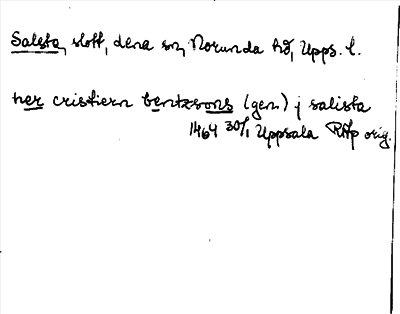 Salsta, slott, dena sn, Norunda hd, Upps. l.
her cristiern bentzsons (gen.) j salista
1464 30/1 Uppsala RAp orig.